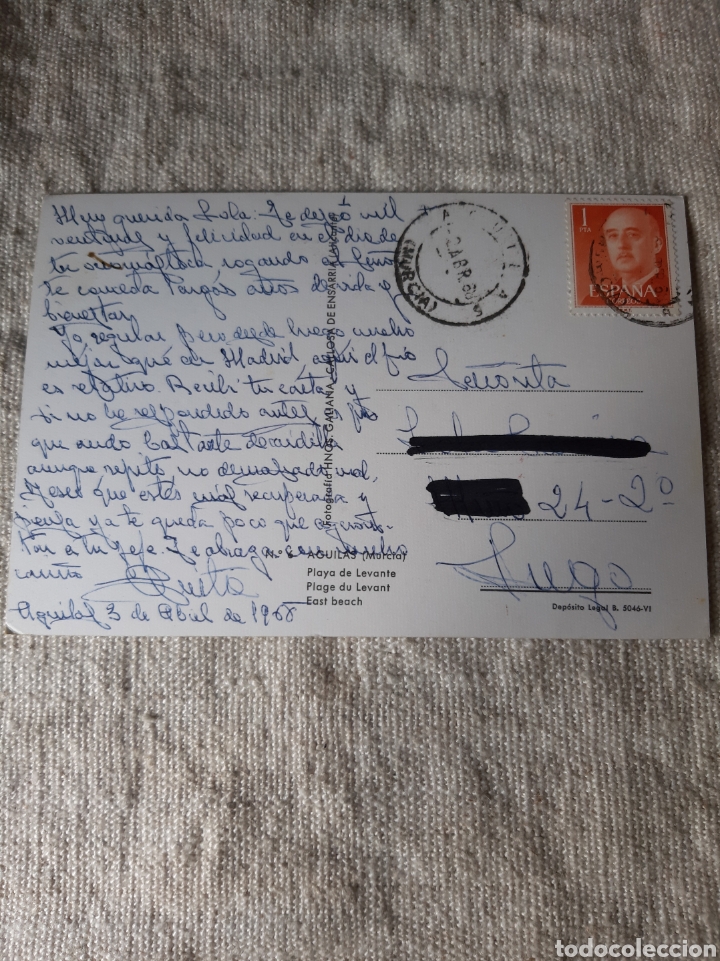 Muy querida Lola: Te deseo mil
venturas y felicidad en el día de
tu onomástica rogando al Señor
te conceda largos años de vida y
bienestar.
Yo regular pero desde luego mucho
mejor que en Madrid aquí el frío
es relativo. Recibí tu carta y
si no he respondido antes es por
que ando bastante
aunque repito, no demasiado mal.
Deseo que estés más recuperada y
piensa ya te queda poco que aguan-
tar a tu Jefe. Te abraza con mucho
cariño
Aguilas 3 de Abril de 1965
Fotografía HNOS. GALIANA - CALLOSA DE ENSARRIA (Alicante)
AGUILAS
ABR
(MURCIA)
1
PTA
ESPAÑA
CORREOS
Señorita
24-2º
Lugo
N.º 8 AGUILAS (Murcia)
Playa de Levante
Plage du Levant
East beach
Depósito Legal B. 5046-VI
todocoleccion
todocoleccion.net